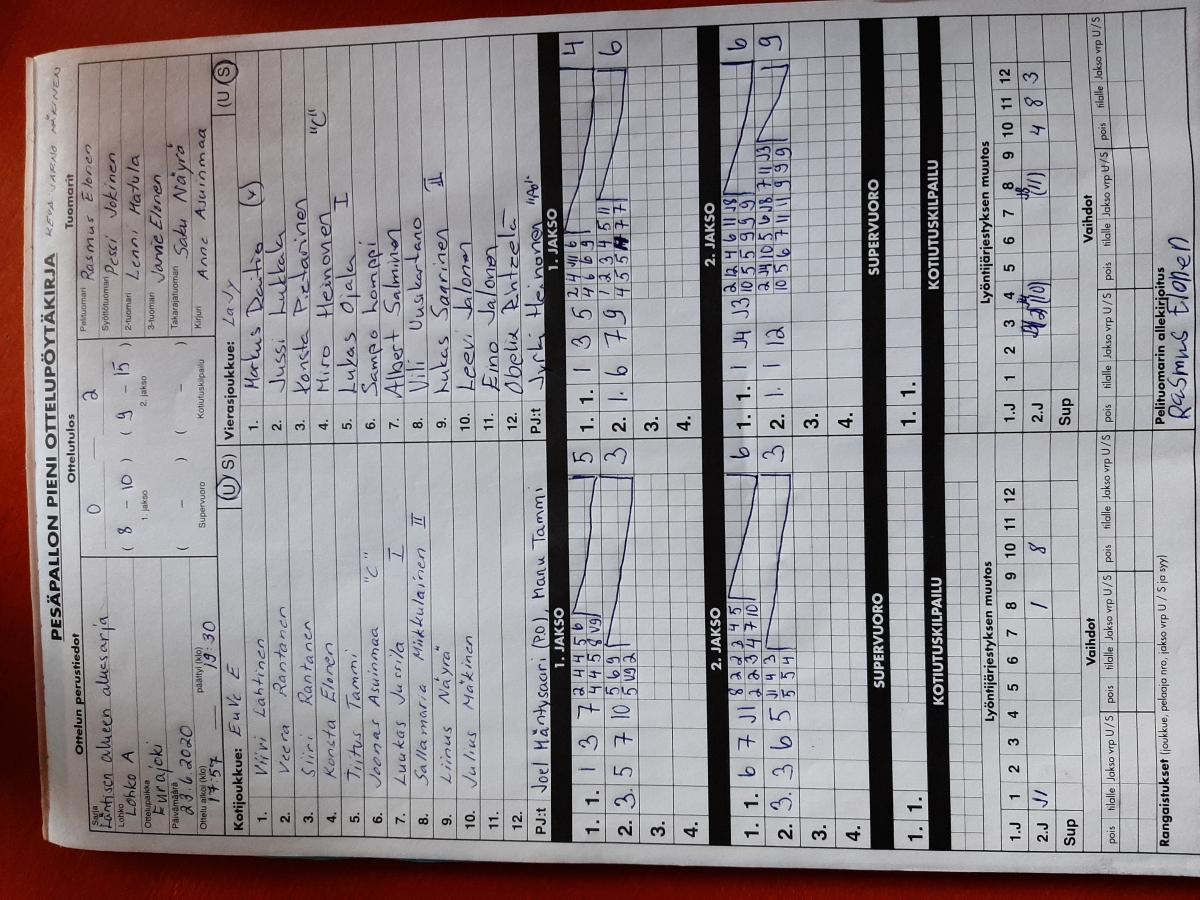 KEVA JARNO MÄKINEN
PESÄPALLON PIENI OTTELUPÖYTÄKIRJA
Ottelun perustiedot
Sarja
Läntisen alueen aluesarja
Lohko
Lohko A
Ottelupaikka
Eurajoki
Päivämäärä
23.6.2020
Ottelu alkoi (klo) päättyi (klo)
17:57 19:30
Ottelutulos
0 2
( 8 - 10 ) ( 9 - 15 )
1. jakso 2. jakso
( - ) ( - )
Supervuoro Kotiutuskilpailu
Tuomarit
Pelituomari Rasmus Elonen
Syöttötuomari Pessi Jokinen
2-tuomari Lenni Matula
3-tuomari Jannie Elonen
Takarajatuomari Saku Näyrä
Kirjuri Anne Asuinmaa
Kotijoukkue: EuVe E (U/S)
1. Viivi Lahtinen
2. Veera Rantanen
3. Siiri Rantanen
4. Konsta Elonen
5. Tiitus Tammi
6. Joonas Asuinmaa "C"
7. Luukas Jussila I
8. Sallamaria Miikkulainen II
9. Linus Näyrä
10. Julius Mäkinen
11.
12.
PJ:t Joel Mäntysaari (P.O), Manu Tammi
Vierasjoukkue: LaJy (U/S)
1. Markus Daitia (V)
2. Jussi Lukkala
3. Konsta Pietarinen
4. Miro Heinonen "C"
5. Lukas Ojala I
6. Sampo Lomppi
7. Albert Salminen
8. Vili Uuskartano
9. Lukas Saarinen II
10. Leevi Jalonen
11. Eino Jalonen
12. Obelia Ahtzela
PJ:t Jyrki Heinonen "Pol"
1. JAKSO 1. JAKSO
1. 1. 1 3 7 2 4 4 5 6 5
7 4 4 5 8 V9
2. 3. 5 7 10 5 6 9 3
5 V9 2
3.
4.
1. 1. 1 3 5 4
2. 1. 6 7 9 6
3.
4.
2. JAKSO 2. JAKSO
1. 1. 6 7 J1 8 2 2 3 4 5 6
2 2 3 4 7 10
2. 3. 3 6 5 J1 4 3 3
5 5 4
3.
4.
1. 1. 1 J4 J3 2 12 4 6 11 J3 6
10 5 5 9 9 9
2. 1. 1 12 2 J4 10 5 6 J8 7 11 J3 9
10 5 6 7 11 11 9 9 9
3.
4.
SUPERVUORO SUPERVUORO
1. 1. 1. 1.
KOTIUTUSKILPAILU KOTIUTUSKILPAILU
Lyöntijärjestyksen muutos Lyöntijärjestyksen muutos
1.J 1 2 3 4 5 6 7 8 9 10 11 12
2.J J1 1 8
Sup
1.J 1 2 3 4 5 6 7 8 9 10 11 12
2.J 2 (10) (11) 4 8 3
Sup
Vaihdot Vaihdot
pois tilalle Jakso vrp U/S pois tilalle Jakso vrp U/S pois tilalle Jakso vrp U/S
pois tilalle Jakso vrp U/S pois tilalle Jakso vrp U/S pois tilalle Jakso vrp U/S
Rangaistukset (joukkue, pelaaja nro, jakso vrp U / S ja syy)
Pelituomarin allekirjoitus
Rasmus Elonen